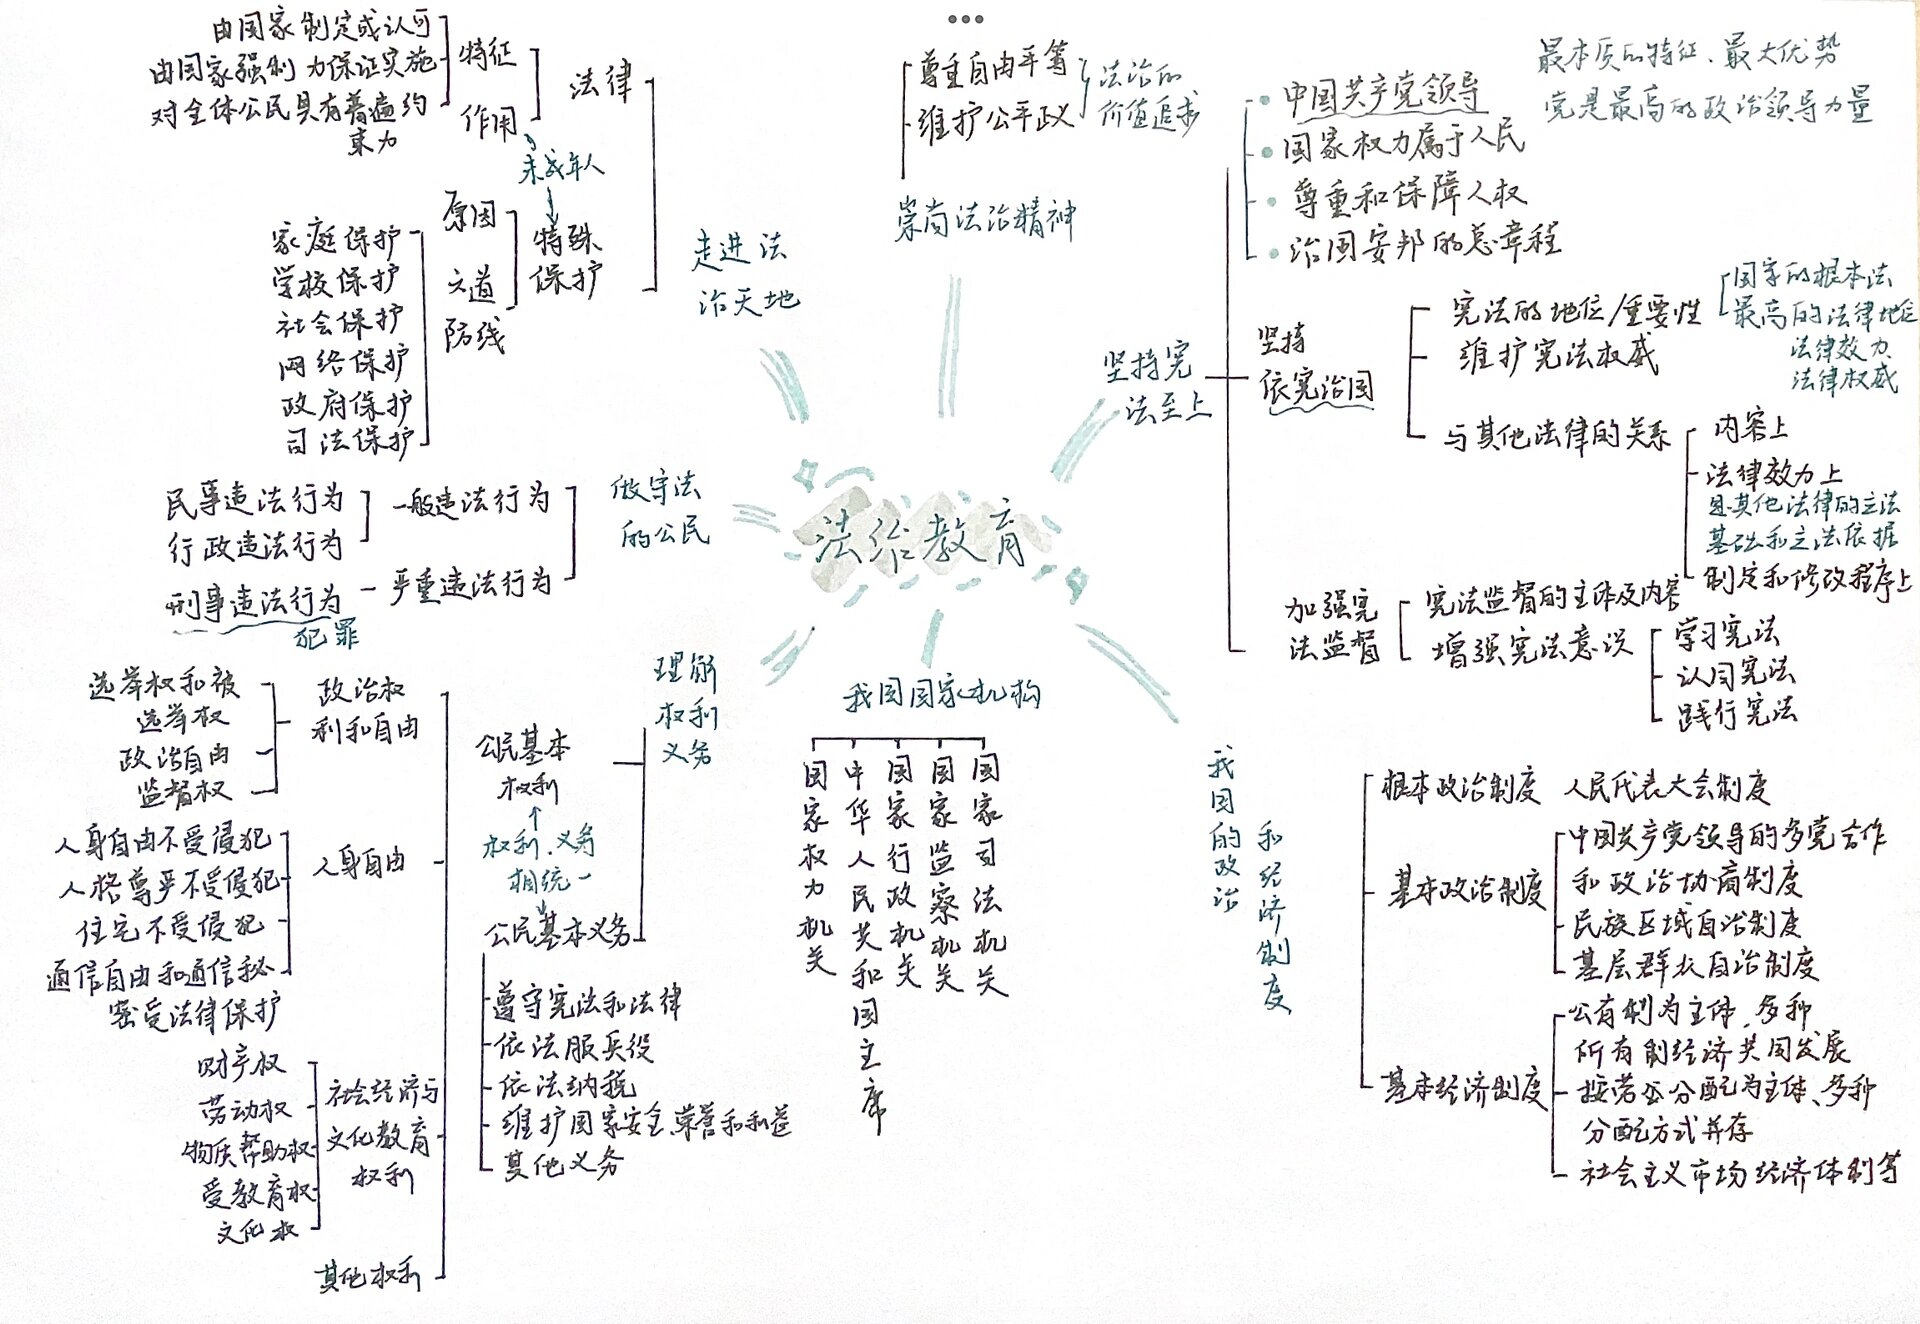 法治教育
走进法
治天地
法律
特征
由国家制定或认可
由国家强制力保证实施
对全体公民具有普遍约
束力
作用
未成年人
特殊
保护
原因
六道
防线
家庭保护
学校保护
社会保护
网络保护
政府保护
司法保护
做守法
的公民
一般违法行为
民事违法行为
行政违法行为
严重违法行为
刑事违法行为
犯罪
理解
权利
义务
公民基本
权利
权利、义务
相统一
公民基本义务
政治权
利和自由
选举权和被
选举权
政治自由
监督权
人身自由
人身自由不受侵犯
人格尊严不受侵犯
住宅不受侵犯
通信自由和通信秘
密受法律保护
社会经济与
文化教育
权利
财产权
劳动权
物质帮助权
受教育权
文化权
其他权利
遵守宪法和法律
依法服兵役
依法纳税
维护国家安全、荣誉和利益
其他义务
我国国家机构
国家权力机关
中华人民共和国主席
国家行政机关
国家监察机关
国家司法机关
尊重自由平等
维护公平正义
法治的
价值追求
崇尚法治精神
坚持宪
法至上
中国共产党领导
最本质的特征、最大优势
党是最高的政治领导力量
国家权力属于人民
尊重和保障人权
治国安邦的总章程
坚持
依宪治国
宪法的地位/重要性
国家的根本法
最高的法律地位
法律效力
法律权威
维护宪法权威
与其他法律的关系
内容上
法律效力上
是其他法律的立法
基础和立法依据
制定和修改程序上
加强宪
法监督
宪法监督的主体及内容
增强宪法意识
学习宪法
认同宪法
践行宪法
我国的政治
和经济制度
根本政治制度 人民代表大会制度
基本政治制度
中国共产党领导的多党合作
和政治协商制度
民族区域自治制度
基层群众自治制度
基本经济制度
公有制为主体、多种
所有制经济共同发展
按劳分配为主体、多种
分配方式并存
社会主义市场经济体制等